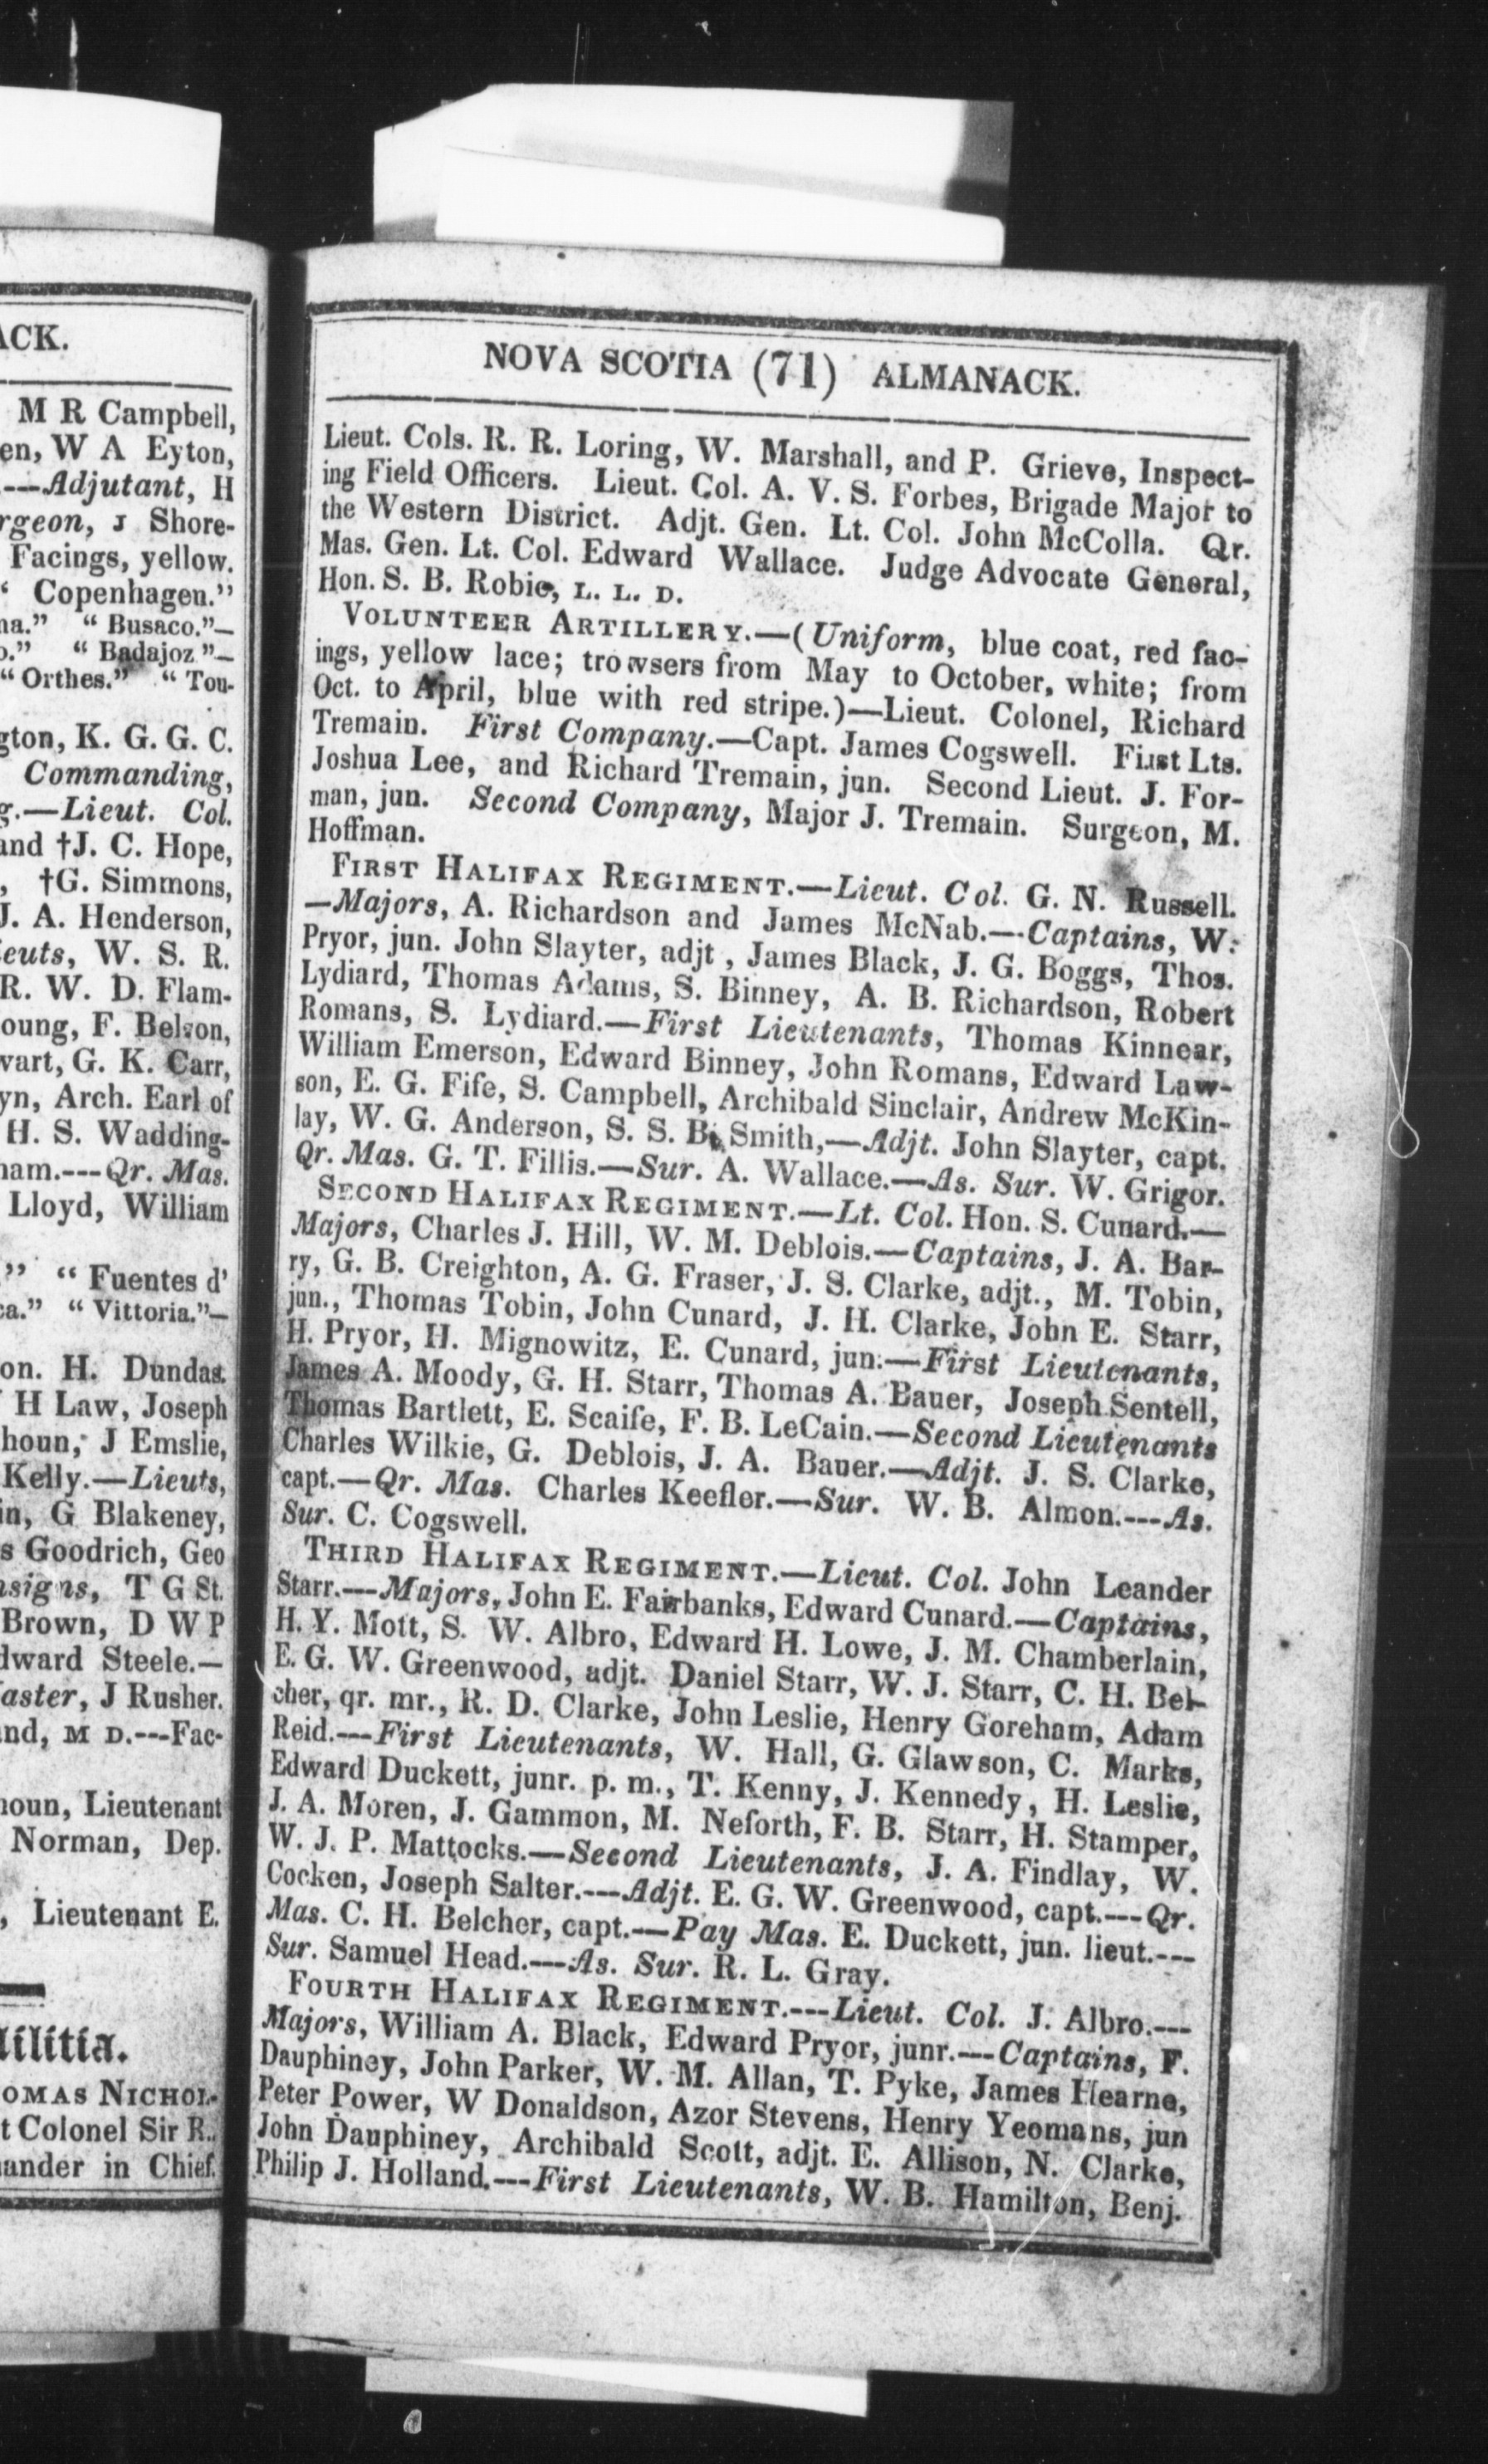 ACK.
M R Campbell,
en, W A Eyton,
—Adjutant, H
rgeon, J Shore-
Facings, yellow.
‘ Copenhagen.”
na.” “ Busaco.”—
o.” “ Badajoz ”—
“ Orthes.” “ Tou-
gton, K. G. G. C.
Commanding,
g.—Lieut. Col.
and †J. C. Hope,
, †G. Simmons,
J. A. Henderson,
ieuts, W. S. R.
R. W. D. Flam-
oung, F. Belson,
wart, G. K. Carr,
yn, Arch. Earl of
H. S. Wadding-
ham.---Qr. Mas.
Lloyd, William
” “ Fuentes d'
ca.” “ Vittoria.”—
on. H. Dundas.
H Law, Joseph
houn, J Emslie,
Kelly.—Lieuts,
in, G Blakeney,
s Goodrich, Geo
nsigns, T G St.
Brown, D W P
dward Steele.—
aster, J Rusher.
nd, M D.---Fac-
houn, Lieutenant
Norman, Dep.
, Lieutenant E.
Militia.
OMAS NICHOL-
t Colonel Sir R.
ander in Chief.
NOVA SCOTIA (71) ALMANACK.
Lieut. Cols. R. R. Loring, W. Marshall, and P. Grieve, Inspect-
ing Field Officers. Lieut. Col. A. V. S. Forbes, Brigade Major to
the Western District. Adjt. Gen. Lt. Col. John McColla. Qr.
Mas. Gen. Lt. Col. Edward Wallace. Judge Advocate General,
Hon. S. B. Robie, L. L. D.
VOLUNTEER ARTILLERY.—(Uniform, blue coat, red fac-
ings, yellow lace; trowsers from May to October, white; from
Oct. to April, blue with red stripe.)—Lieut. Colonel, Richard
Tremain. First Company.—Capt. James Cogswell. First Lts.
Joshua Lee, and Richard Tremain, jun. Second Lieut. J. For-
man, jun. Second Company, Major J. Tremain. Surgeon, M.
Hoffman.
FIRST HALIFAX REGIMENT.—Lieut. Col. G. N. Russell.
—Majors, A. Richardson and James McNab.—Captains, W.
Pryor, jun. John Slayter, adjt , James Black, J. G. Boggs, Thos.
Lydiard, Thomas Adams, S. Binney, A. B. Richardson, Robert
Romans, S. Lydiard.—First Lieutenants, Thomas Kinnear,
William Emerson, Edward Binney, John Romans, Edward Law-
son, E. G. Fife, S. Campbell, Archibald Sinclair, Andrew McKin-
lay, W. G. Anderson, S. S. B. Smith,—Adjt. John Slayter, capt.
Qr. Mas. G. T. Fillis.—Sur. A. Wallace.—As. Sur. W. Grigor.
SECOND HALIFAX REGIMENT.—Lt. Col. Hon. S. Cunard.—
Majors, Charles J. Hill, W. M. Deblois.—Captains, J. A. Bar-
ry, G. B. Creighton, A. G. Fraser, J. S. Clarke, adjt., M. Tobin,
jun., Thomas Tobin, John Cunard, J. H. Clarke, John E. Starr,
H. Pryor, H. Mignowitz, E. Cunard, jun.—First Lieutenants,
James A. Moody, G. H. Starr, Thomas A. Bauer, Joseph Sentell,
Thomas Bartlett, E. Scaife, F. B. LeCain.—Second Lieutenants
Charles Wilkie, G. Deblois, J. A. Bauer.—Adjt. J. S. Clarke,
capt.—Qr. Mas. Charles Keefler.—Sur. W. B. Almon.---As.
Sur. C. Cogswell.
THIRD HALIFAX REGIMENT.—Lieut. Col. John Leander
Starr.---Majors, John E. Fairbanks, Edward Cunard.—Captains,
H. Y. Mott, S. W. Albro, Edward H. Lowe, J. M. Chamberlain,
E. G. W. Greenwood, adjt. Daniel Starr, W. J. Starr, C. H. Bel-
cher, qr. mr., R. D. Clarke, John Leslie, Henry Goreham, Adam
Reid.---First Lieutenants, W. Hall, G. Glawson, C. Marks,
Edward Duckett, junr. p. m., T. Kenny, J. Kennedy, H. Leslie,
J. A. Moren, J. Gammon, M. Neforth, F. B. Starr, H. Stamper,
W. J. P. Mattocks.—Second Lieutenants, J. A. Findlay, W.
Cocken, Joseph Salter.---Adjt. E. G. W. Greenwood, capt.---Qr.
Mas. C. H. Belcher, capt.—Pay Mas. E. Duckett, jun. lieut.---
Sur. Samuel Head.---As. Sur. R. L. Gray.
FOURTH HALIFAX REGIMENT.---Lieut. Col. J. Albro.---
Majors, William A. Black, Edward Pryor, junr.---Captains, F.
Dauphiney, John Parker, W. M. Allan, T. Pyke, James Hearne,
Peter Power, W Donaldson, Azor Stevens, Henry Yeomans, jun
John Dauphiney, Archibald Scott, adjt. E. Allison, N. Clarke,
Philip J. Holland.---First Lieutenants, W. B. Hamilton, Benj.